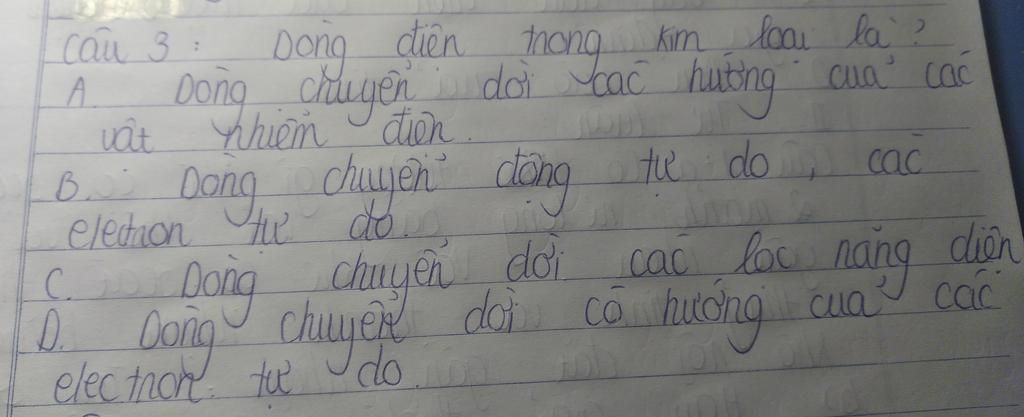 Câu 3 : Dòng điện trong kim loại là?
A. Dòng chuyển dời các hướng của các
vật nhiễm điện.
B. Dòng chuyển động tự do, các
electron tự do.
C. Dòng chuyển dời các lốc năng điện
D. Dòng chuyển dời có hướng của các
electron tự do.